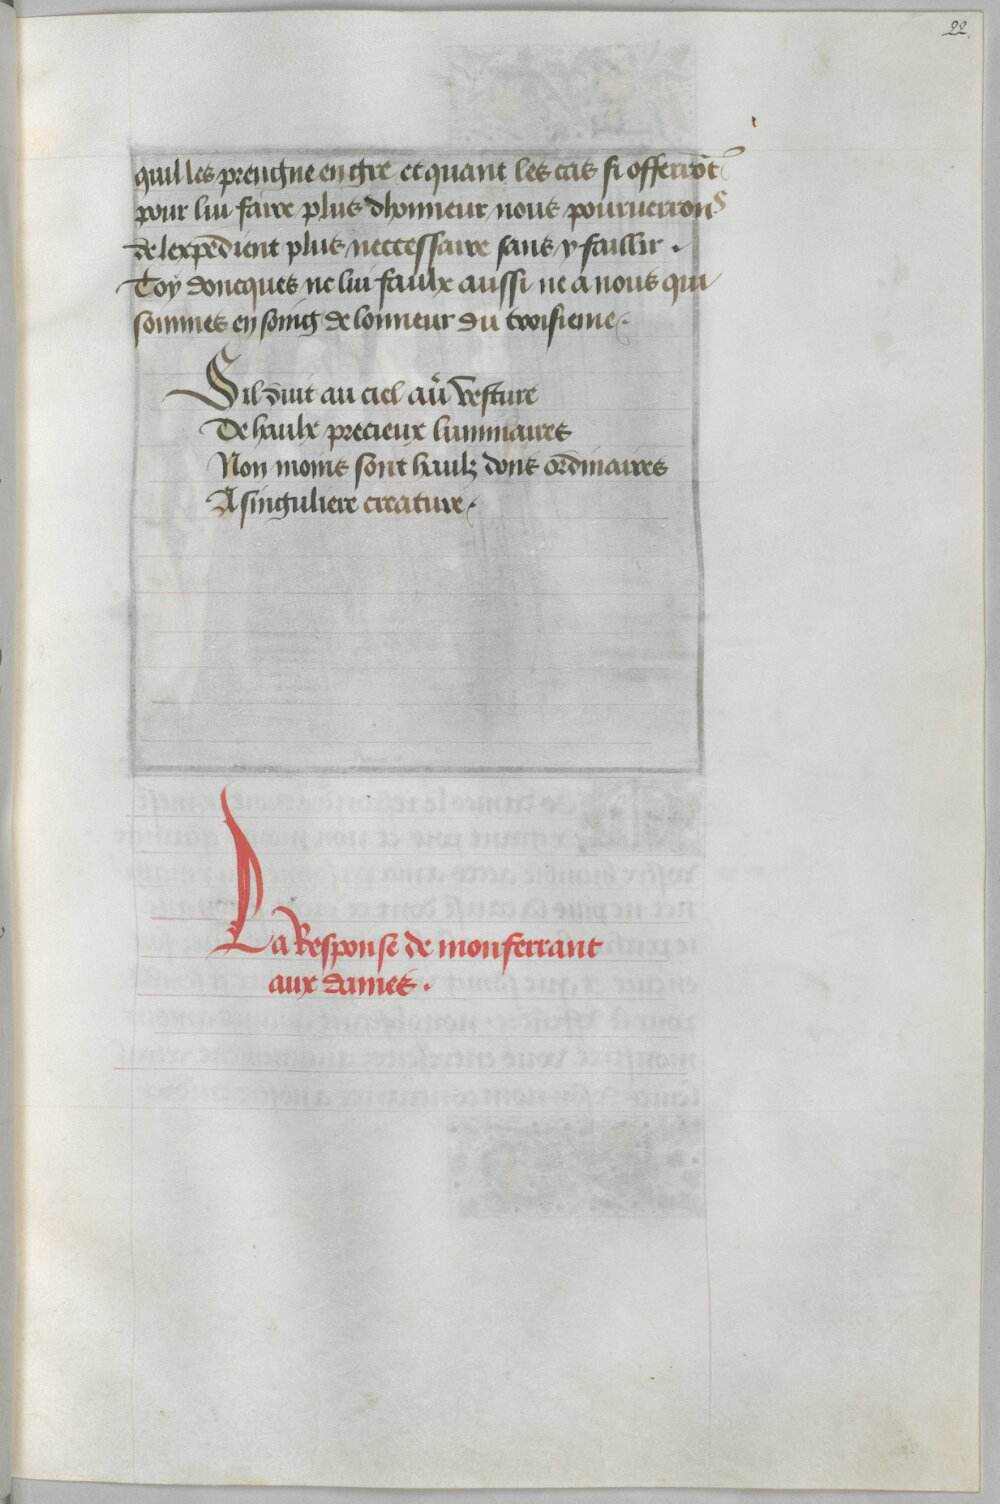 22.
quil les prengne en gre et quant les cas si offerrõt
pour lui faire plus dhonneur nous pourverrons
de lexpedient plus neccessaire sans y faillir .
Toy doncques ne lui faulx aussi ne a nous qui
sommes en soing de lonneur du troisieme .
Sil duit au ciel au᷑ vesture
De haulx precieux luminaires
Non moins sont haulz dons ordinaires
A singuliere creature .
La Response de monferrant
aux dames .